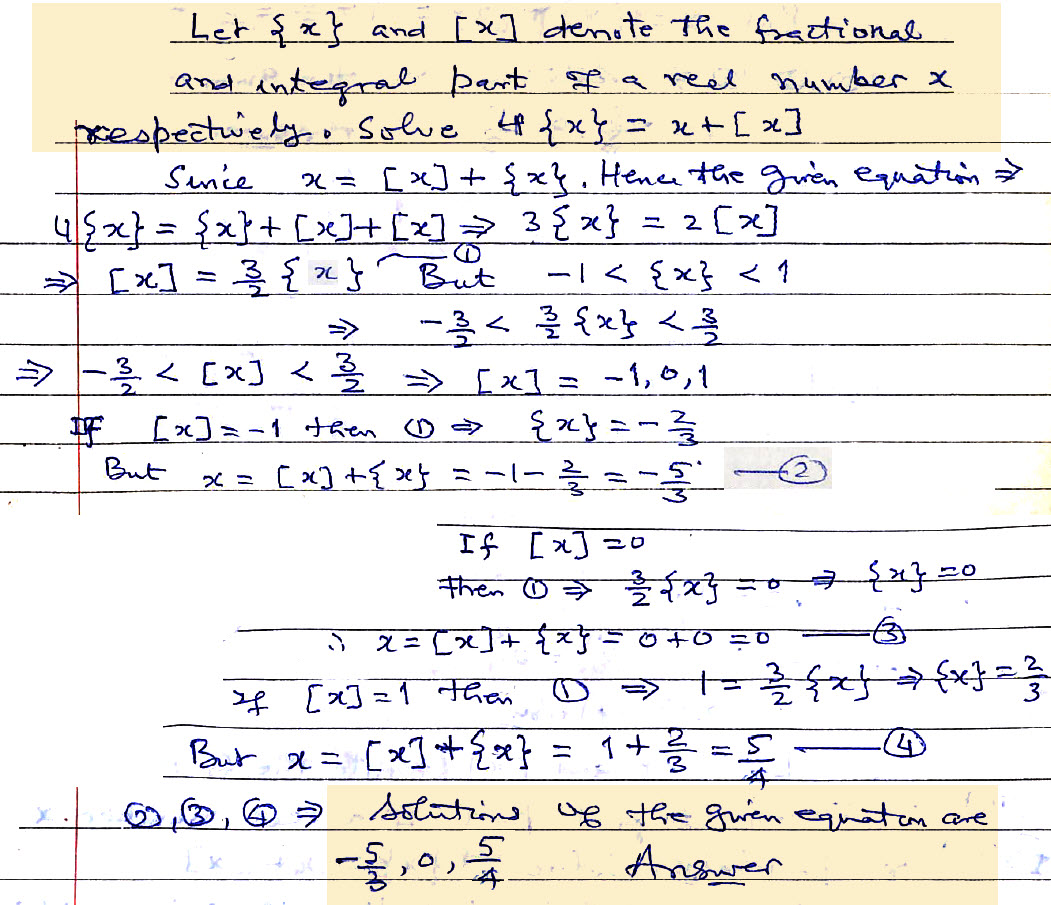 Let {x} and [x] denote the fractional
and integral part of a real number x
respectively. Solve 4{x} = x+[x]
Since x = [x] + {x}. Hence the given equation ⇒
4{x} = {x}+[x]+[x] ⇒ 3{x} = 2[x]
⇒ [x] = 3/2 {x} ① But -1 < {x} < 1
⇒ -3/2 < 3/2 {x} < 3/2
⇒ -3/2 < [x] < 3/2 ⇒ [x] = -1, 0, 1
If [x] = -1 then ① ⇒ {x} = -2/3
But x = [x]+{x} = -1-2/3 = -5/3 — ②
If [x] = 0
then ① ⇒ 3/2 {x} = 0 ⇒ {x} = 0
∴ x = [x]+{x} = 0+0 = 0 — ③
If [x] = 1 then ① ⇒ 1 = 3/2 {x} ⇒ {x} = 2/3
But x = [x]+{x} = 1+2/3 = 5/4 — ④
②, ③, ④ ⇒ Solutions of the given equation are
-5/3, 0, 5/4 Answer